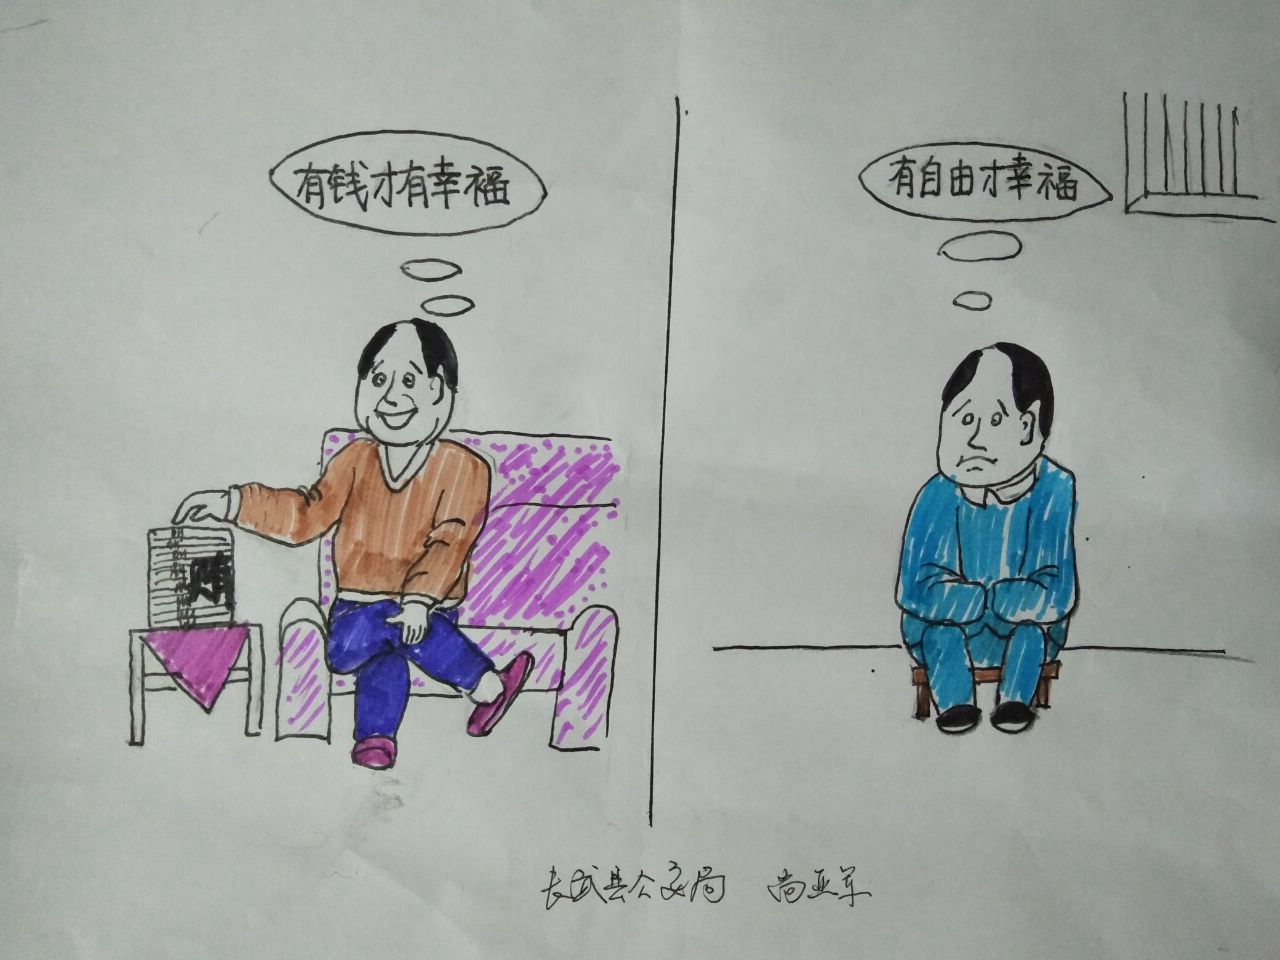 有钱才有幸福
有自由才幸福
赃
长武县公安局 尚亚军